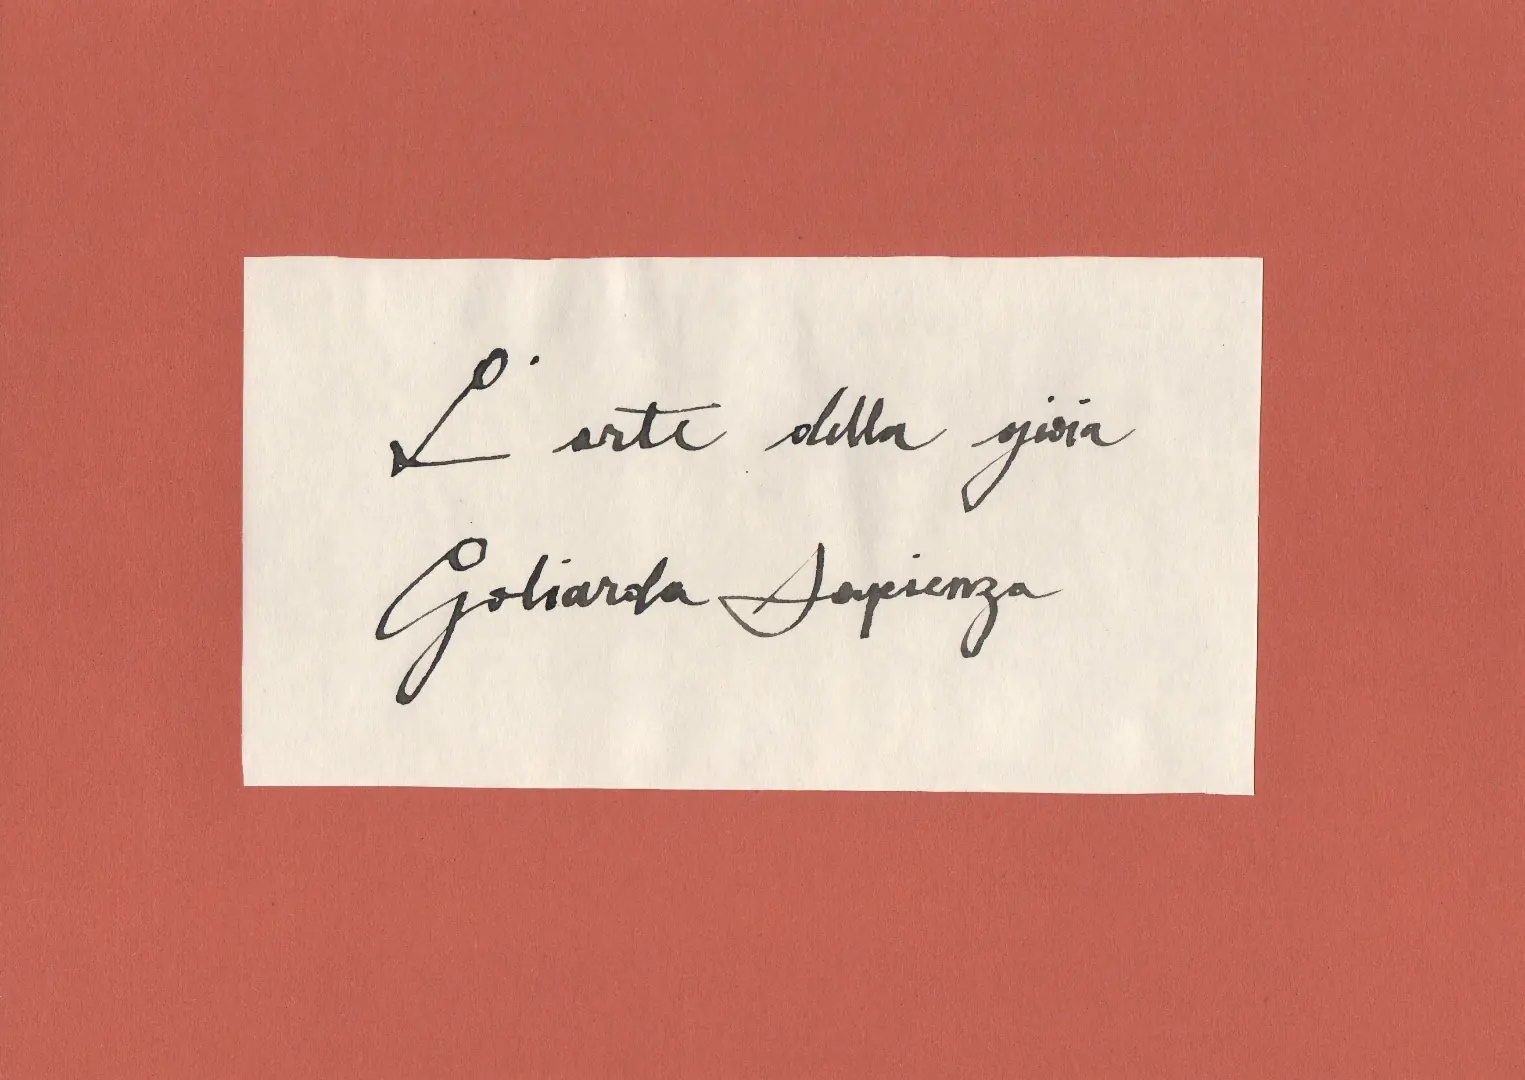 L'arte della gioia
Goliarda Sapienza